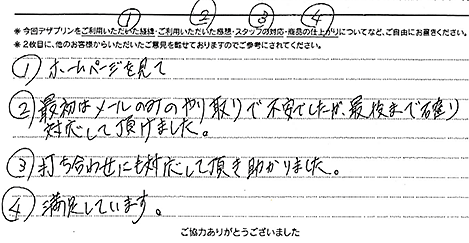 ① ② ③ ④
※今回デザプリンをご利用いただいた経緯・ご利用いただいた感想・スタッフの対応・商品の仕上がりについてなど、ご自由にお書きください。
※2枚目に、他のお客様からいただいたご意見を載せておりますのでご参考にされてください。
① ホームページを見て
② 最初はメールのみのやり取りで不安でしたが、最後まで確り
対応して頂けました。
③ 打ち合わせにも対応して頂き助かりました。
④ 満足しています。
ご協力ありがとうございました